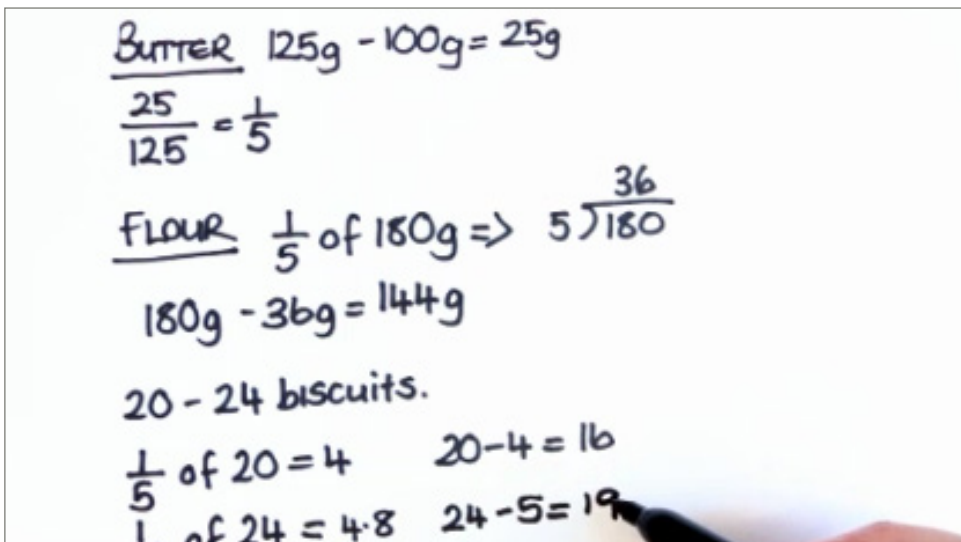 BUTTER 125g - 100g = 25g
25/125 = 1/5
36
FLOUR 1/5 of 180g => 5)180
180g - 36g = 144g
20 - 24 biscuits.
1/5 of 20 = 4 20-4 = 16
of 24 = 4.8 24-5 = 19